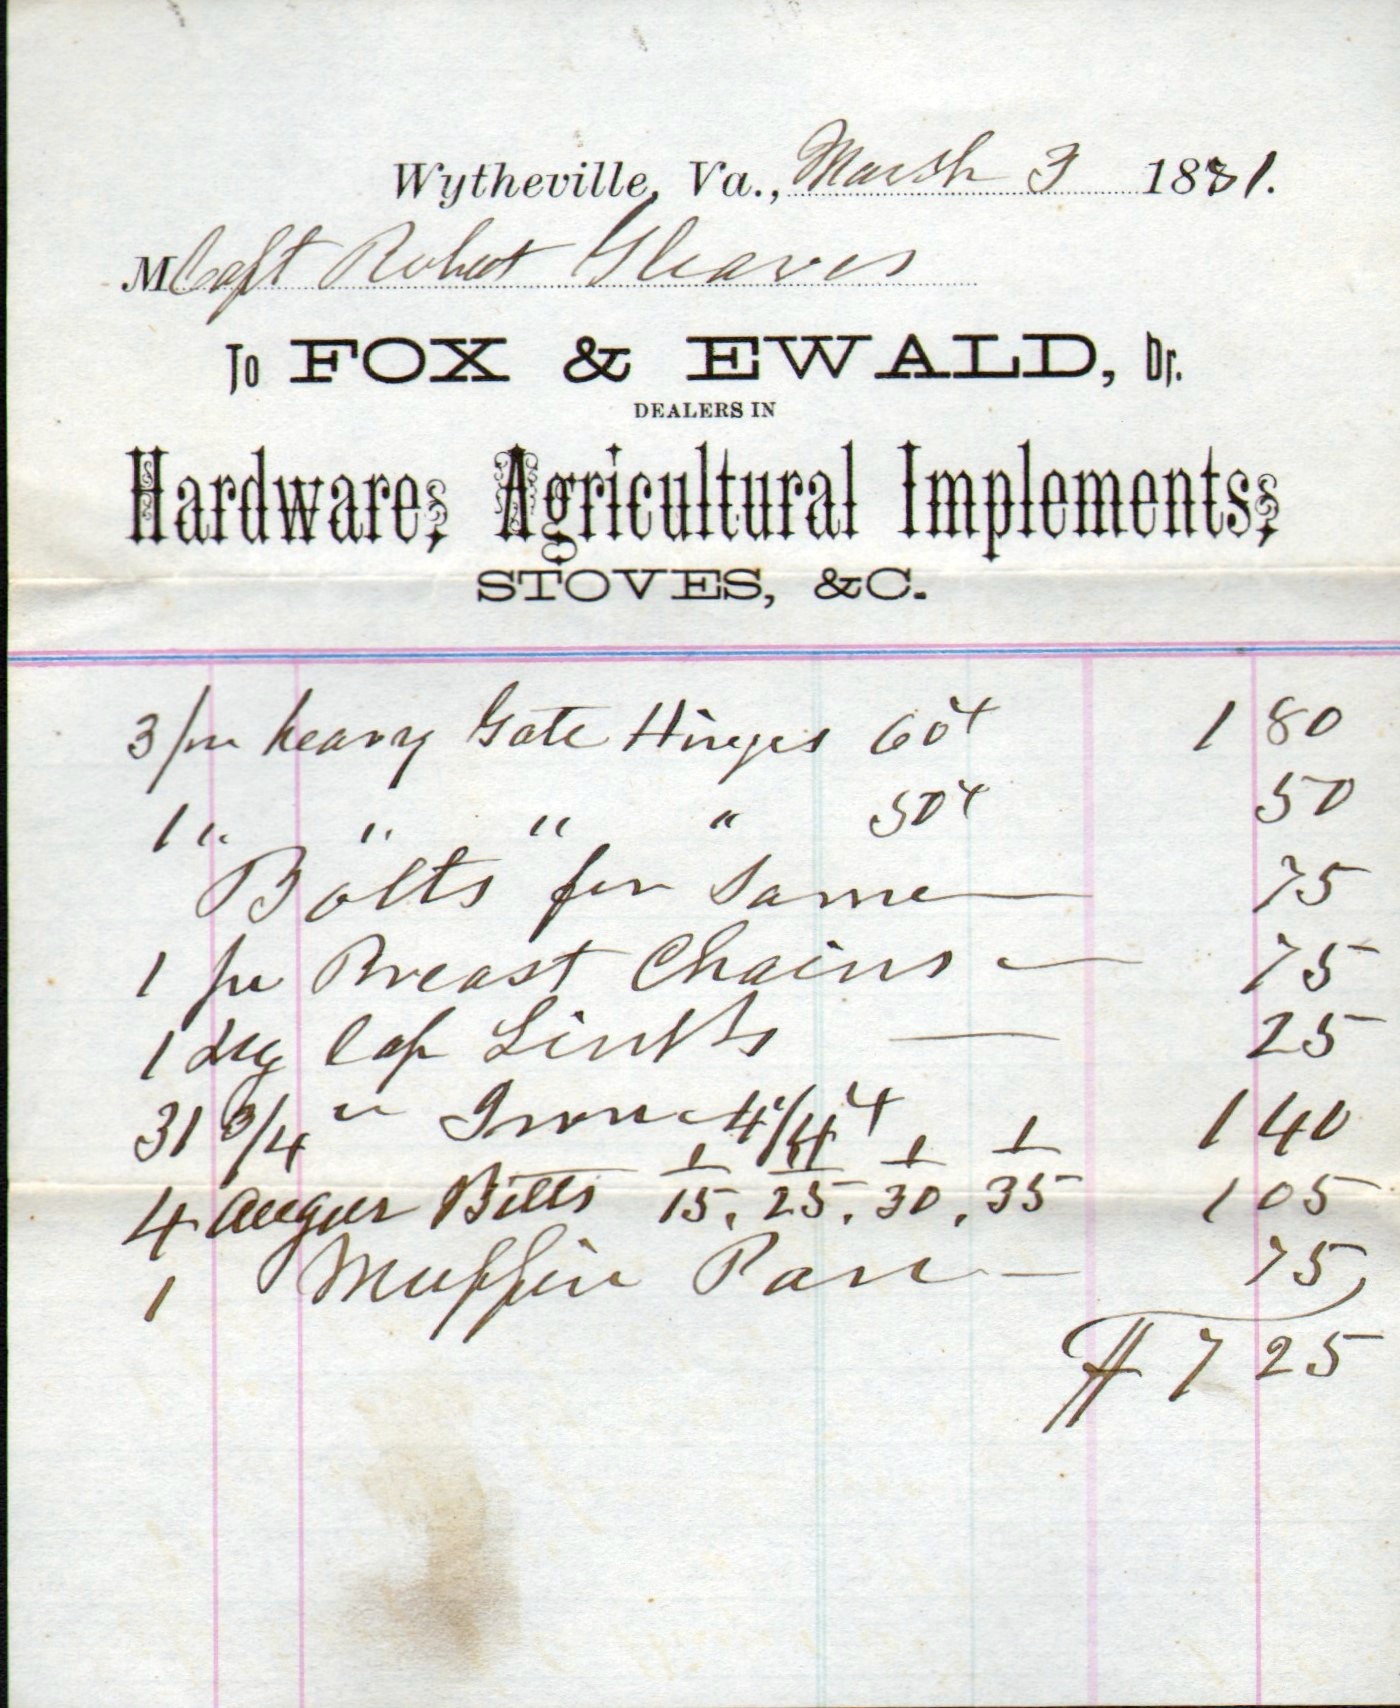 Wytheville, Va., March 3 1881.
M Capt Robert Gleaves
To FOX & EWALD, Dr.
DEALERS IN
Hardware, Agricultural Implements,
STOVES, &C.
3 pr heavy Gate Hinges 60¢ 1 80
1 " " " " 50¢ 50
Bolts for Same — 75
1 pr Breast Chains — 75
1 Lap Links — 25
31 3/4 " Iron 1 40
4 Auger Bitts 1/15, 1/25, 1/30, 1/35 1 05
1 Muffin Pan — 75
$ 7 25